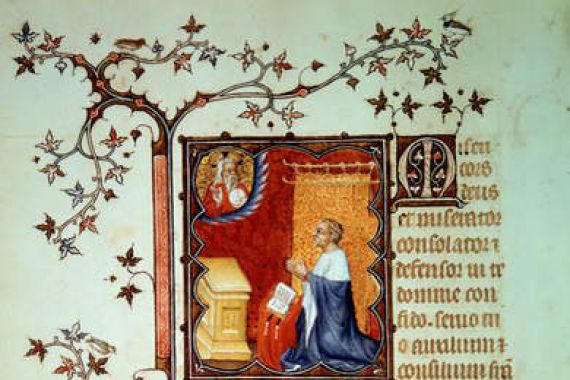 Miseri
cors
deus
et miserator
consolator ⁊
defensor in te
domine con
fido. seruo tu
o auxilium ⁊
consilium